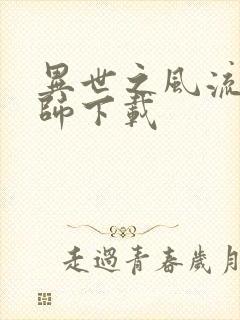 異世之風流
師下載
走過青春歲月